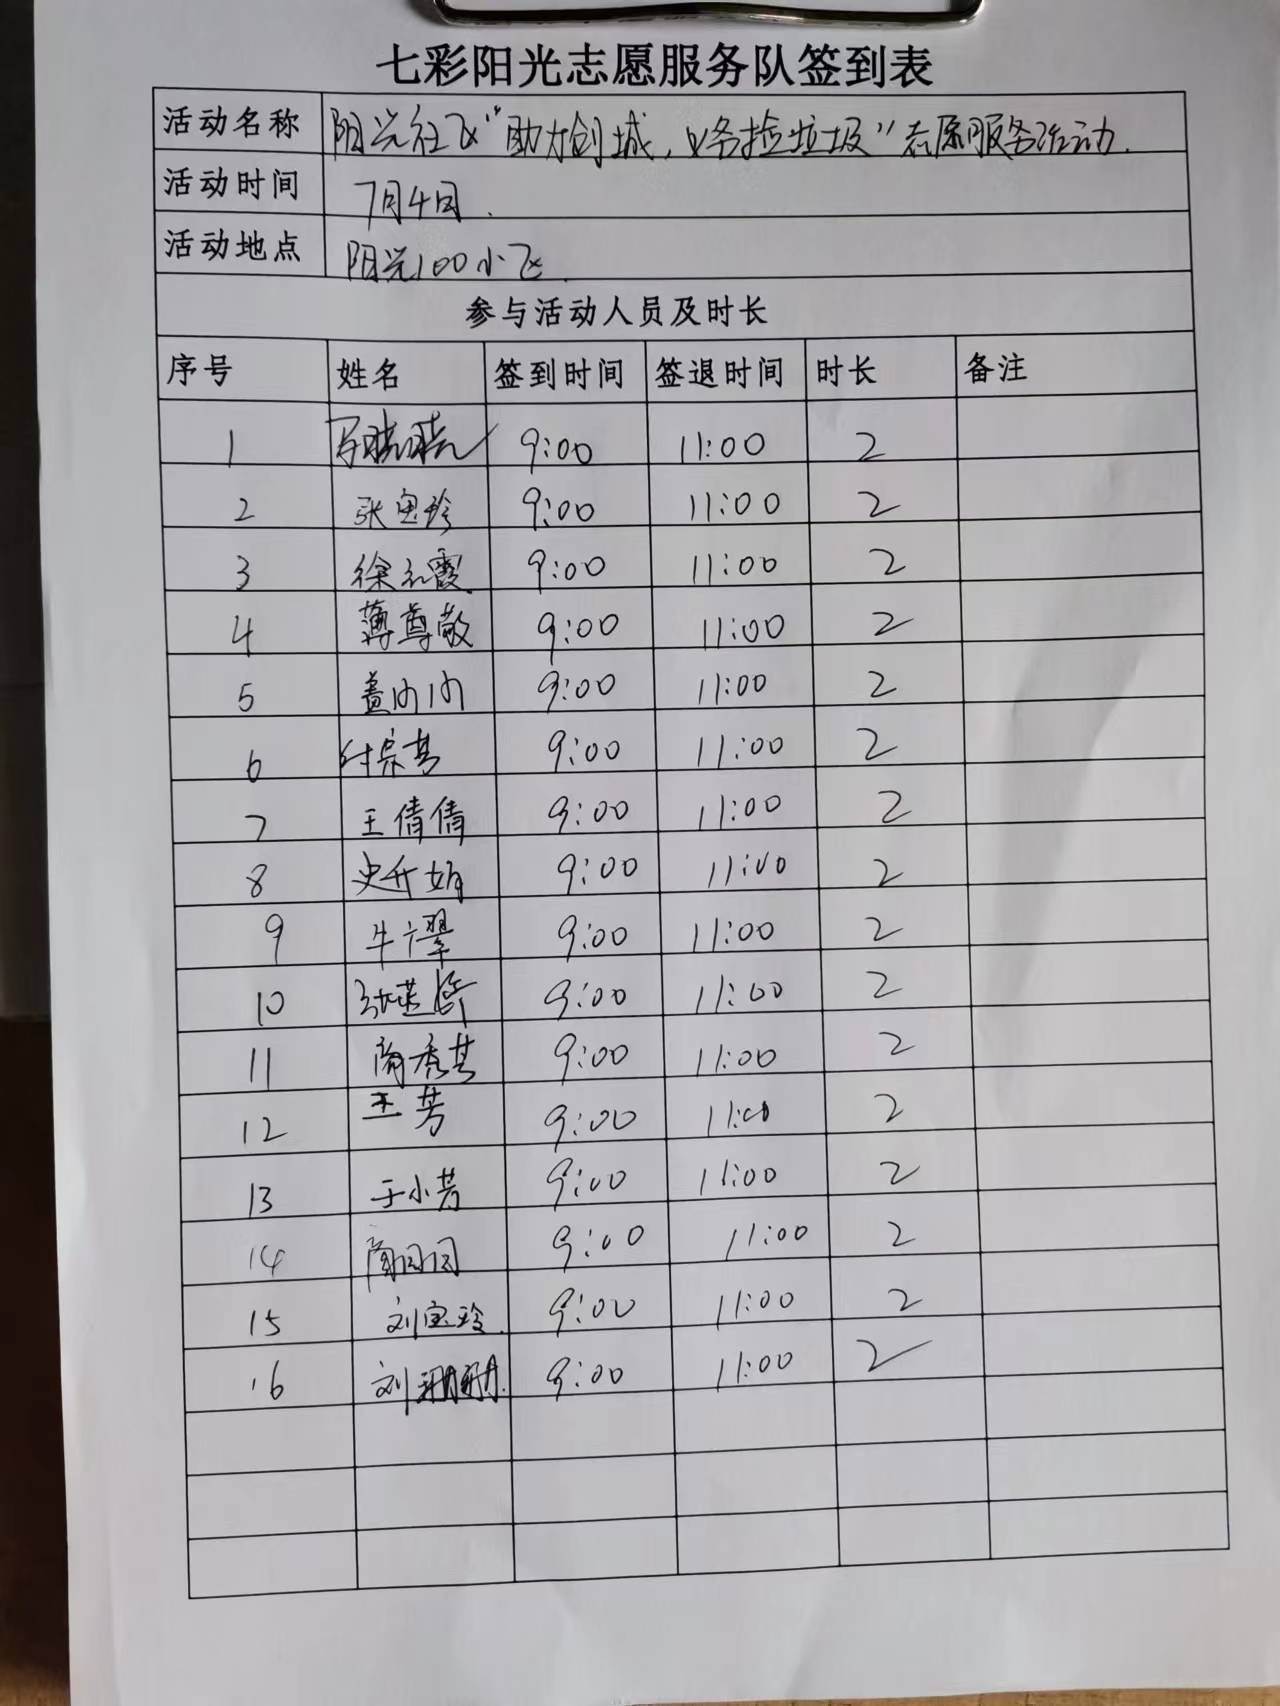 七彩阳光志愿服务队签到表
活动名称 阳光社区“助力创城，义务捡垃圾”志愿服务活动.
活动时间 7月4日.
活动地点 阳光100小区.
参与活动人员及时长
序号 姓名 签到时间 签退时间 时长 备注
1 9:00 11:00 2
2 张宝珍 9:00 11:00 2
3 徐红霞 9:00 11:00 2
4 薄尊敬 9:00 11:00 2
5 9:00 11:00 2
6 付宗芳 9:00 11:00 2
7 王倩倩 9:00 11:00 2
8 史升娟 9:00 11:00 2
9 9:00 11:00 2
10 9:00 11:00 2
11 9:00 11:00 2
12 王芳 9:00 11:00 2
13 于小芳 9:00 11:00 2
14 9:00 11:00 2
15 刘宝玲. 9:00 11:00 2
16 刘珊珊. 9:00 11:00 2